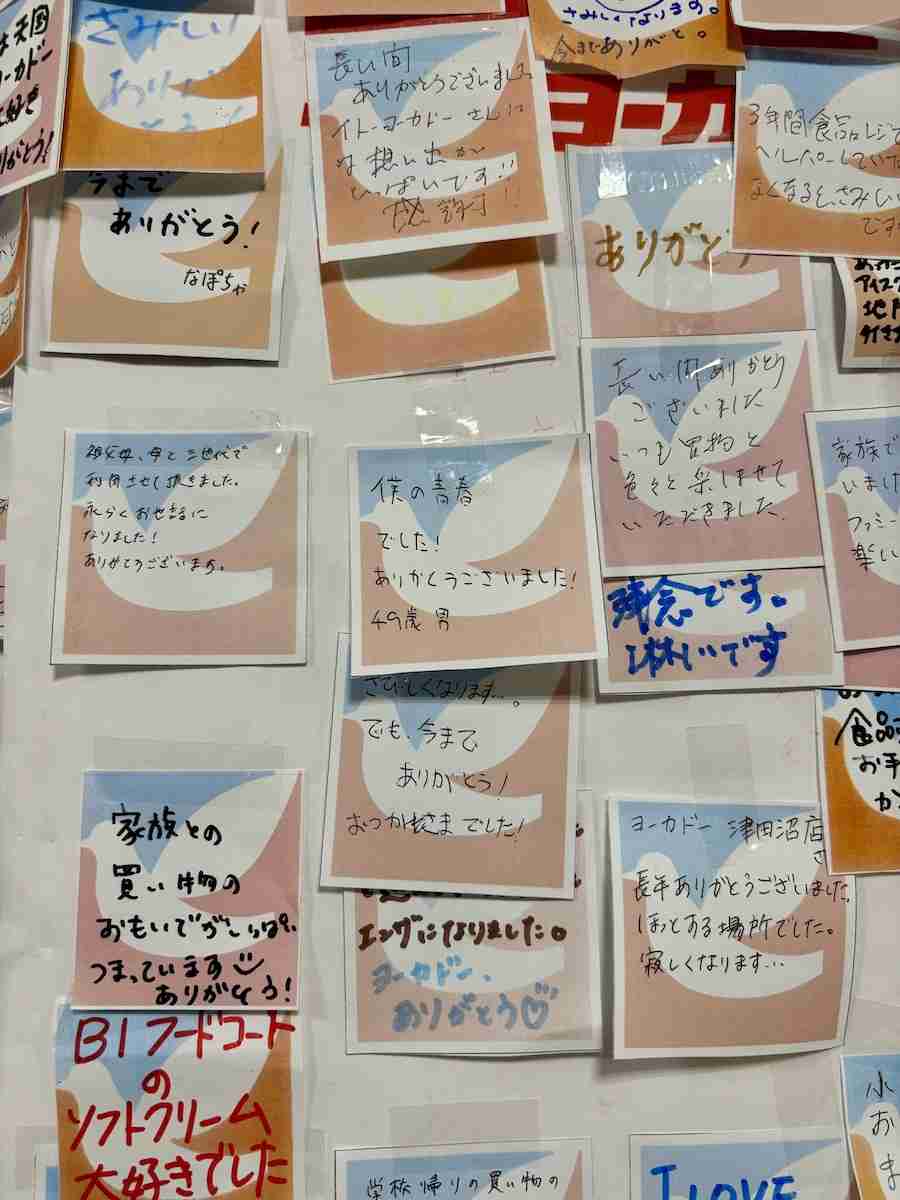 は天国
ヨーカドー
大好き
りがとう!
さみしい
ありがとう!
今まで
ありがとう!
なぽちゃ
長い間
ありがとうございました
イトーヨーカドーさんに
は想い出が
いっぱいです!!
さみしいなります。
今までありがと。
ヨーカ
ありがとう
3年間食品レジで
ヘルパーしていた
なくなると、さみしい
です
アイスク
地下
祖父母、母と三世代で
利用させて頂きました。
永らくお世話に
なりました!
ありがとうございます。
僕の青春
でした!
ありがとうございました!
49歳 男
長い間ありがとう
ございました
いつも買物と
色々と楽しませて
いただきました。
家族で
いました
ファミー
楽し
残念です。
淋しいです
さびしくなります…。
でも、今まで
ありがとう!
おつかれさまでした!
食品
お手
か
家族との
買い物の
おもいでがいっぱい
つまっています
ありがとう!
エンゲになりました。
ヨーカドー、
ありがとう
ヨーカドー 津田沼店
さ
長年ありがとうございました。
ほっとする場所でした。
寂しくなります…
B1フードコート
の
ソフトクリーム
大好きでした
学校帰りの買い物の
I LOVE
小
お
ま